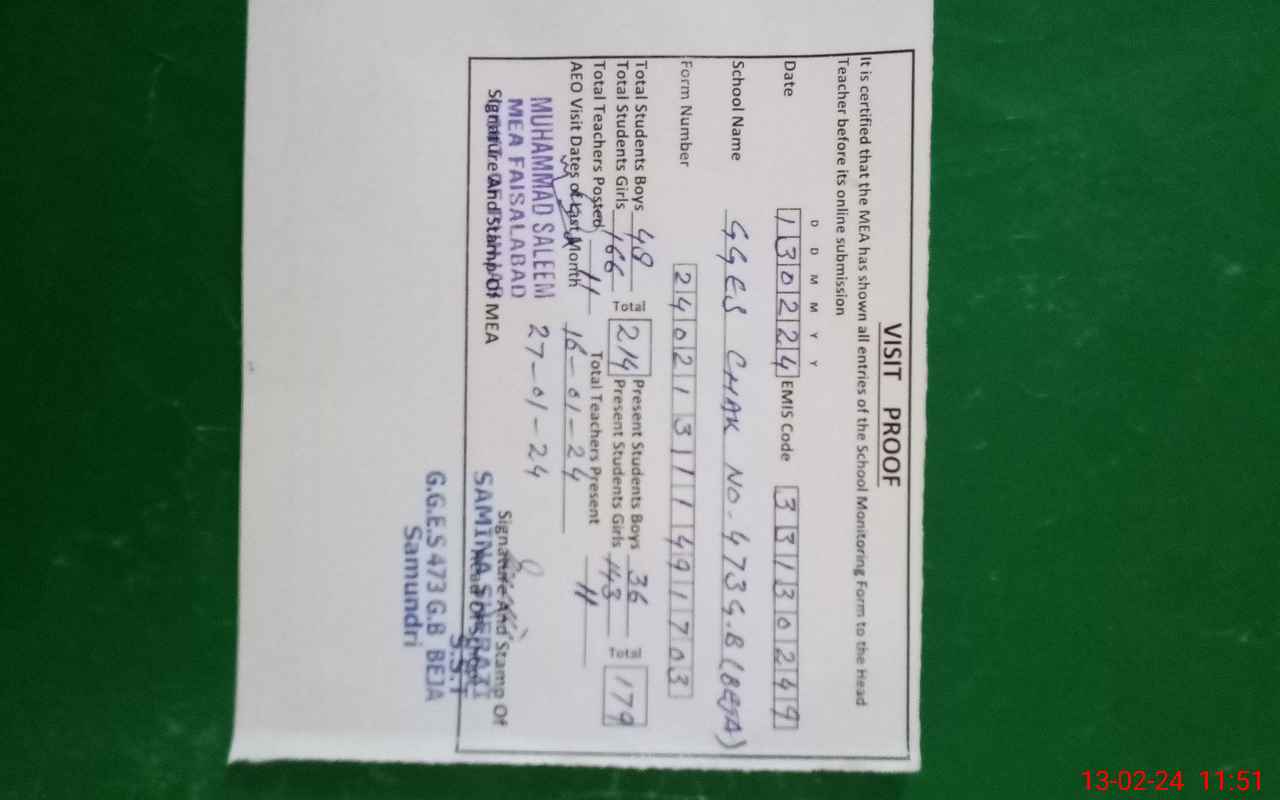 VISIT PROOF
It is certified that the MEA has shown all entries of the School Monitoring Form to the Head
Teacher before its online submission
D D M M Y Y
Date 130224 EMIS Code 33130249
School Name GGES CHAK NO-473 G.B (BEJA)
Form Number 240213111491703
Total Students Boys 48 Total 214 Present Students Boys 36 Total 179
Total Students Girls 166 Present Students Girls 143
Total Teachers Posted 11 Total Teachers Present 11
AEO Visit Dates of Last Month 16-01-24
27-01-24
MUHAMMAD SALEEM
MEA FAISALABAD
Signature And Stamp Of MEA
Signature And Stamp Of
Head Of School
SAMINA
S.S.T
G.G.E.S 473 G.B BEJA
Samundri
13-02-24 11:51